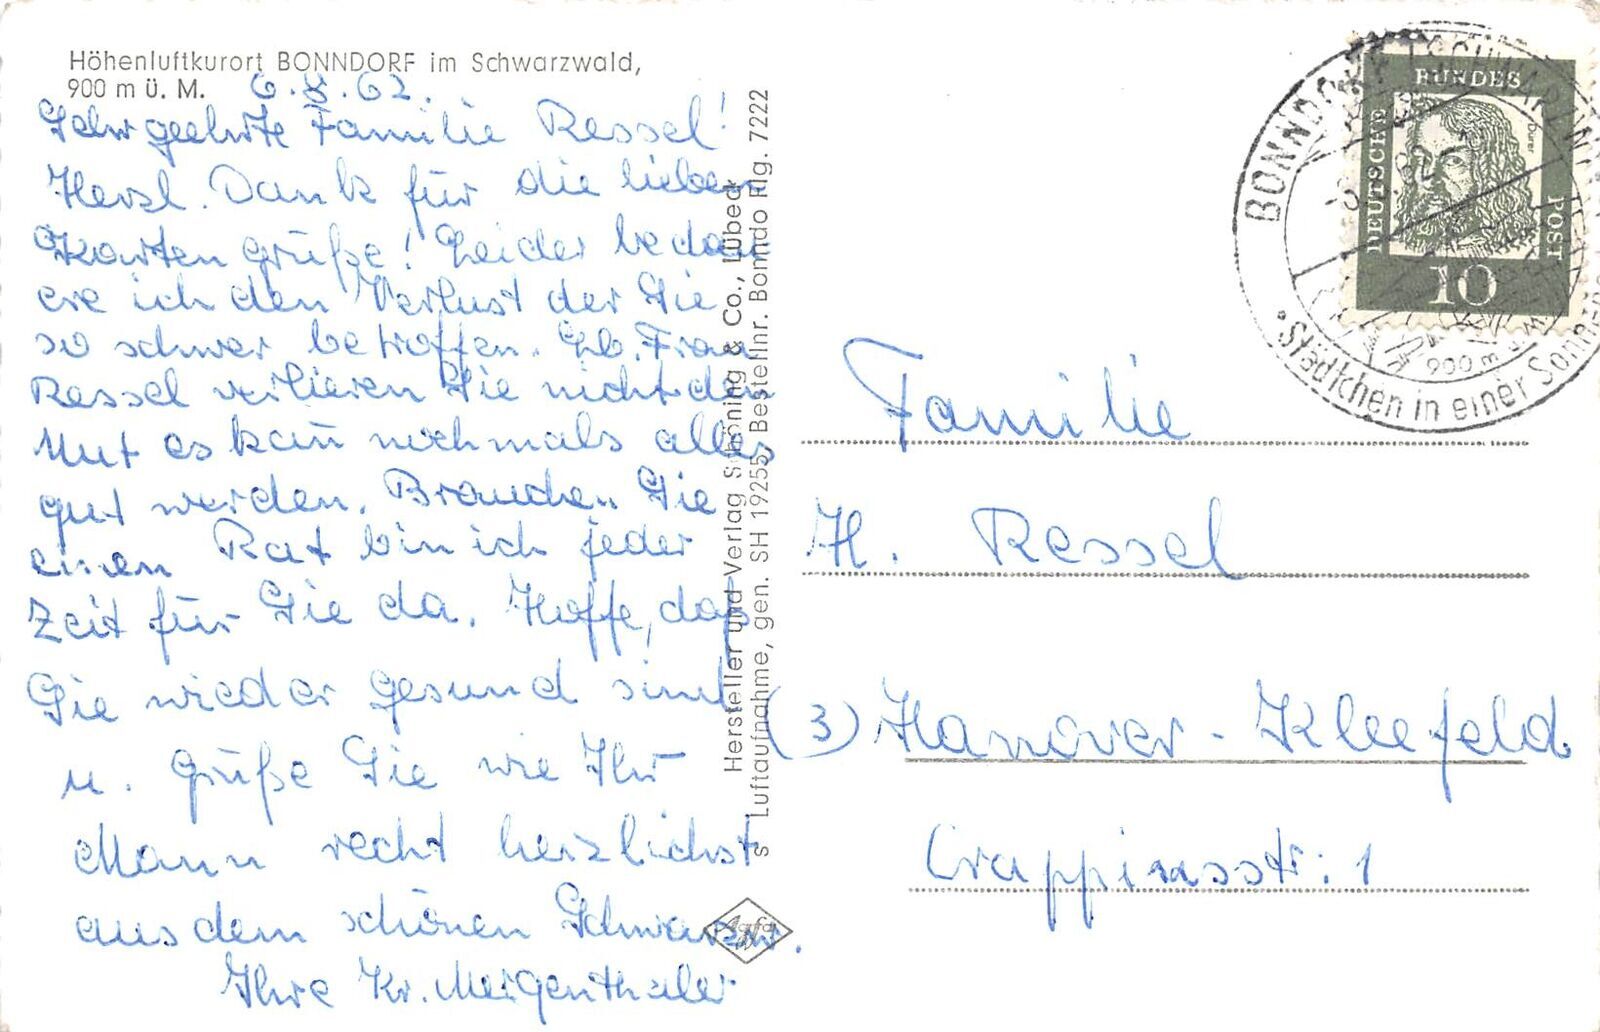 Höhenluftkurort BONNDORF im Schwarzwald,
900 m ü. M.
6.8.62.
Sehr geehrte Familie Ressel!
Herzl. Dank für die lieben
Karten grüße! Leider bedau
ere ich den Verlust der Sie
so schwer betroffen. Gb. Frau
Ressel verlieren Sie nicht den
Mut es kan̄ nochmals alles
gut werden. Brauchen Sie
einen Rat bin ich jeder
Zeit für Sie da. Hoffe, daß
Sie wieder gesund sind
u. grüße Sie wie Ihr
Mann recht herzlichst
aus dem schönen Schwarzw.
Ihre Kr. Meigenthaler
Hersteller und Verlag Schöning & Co., Lübeck
s Luftaufnahme, gen. SH 19255 Bestellnr. Bonndo Flg. 7222
Agfa
BONNDORF SCHWARZW
900 m ü. M.
Städtchen in einer Sonnen
DEUTSCHE
BUNDES
POST
Dürer
10
Familie
H. Ressel
(3) Hanover-Kleefeld
Crappiusstr: 1